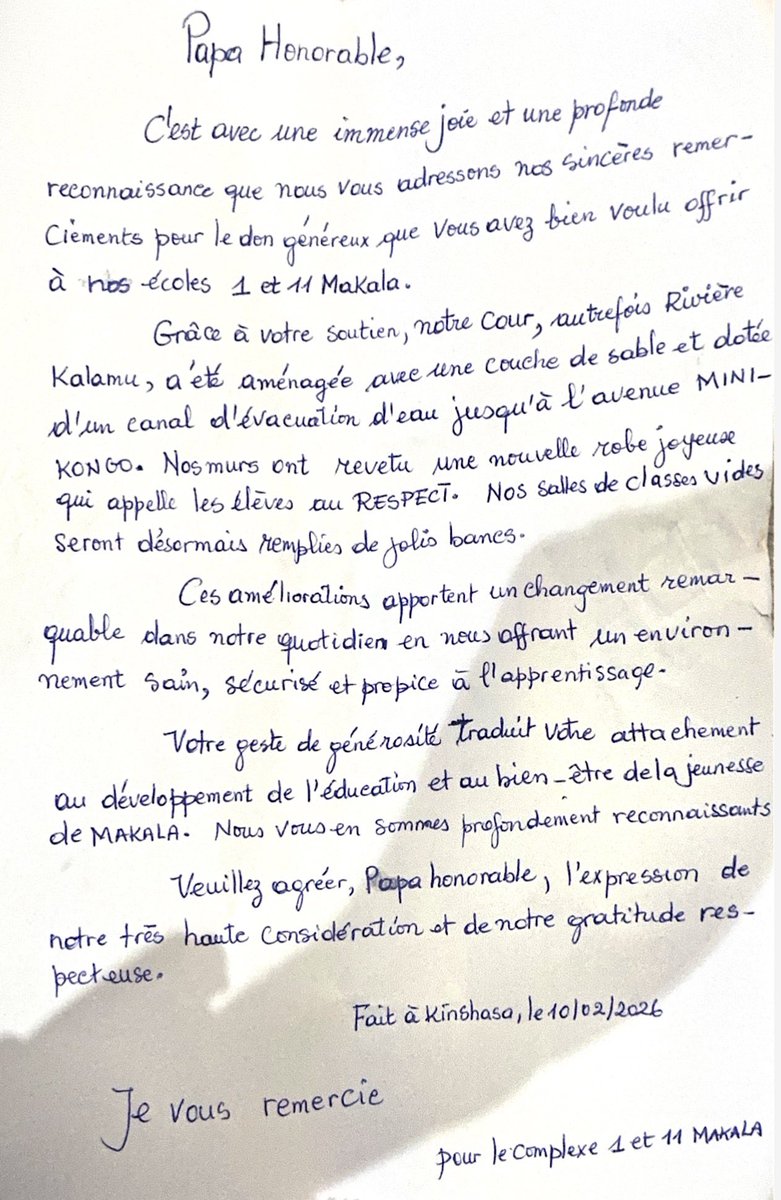 Papa Honorable,
C'est avec une immense joie et une profonde
reconnaissance que nous vous adressons nos sincères remer-
Ciements pour le don généreux que vous avez bien voulu offrir
à nos écoles 1 et 11 Makala.
Grâce à votre soutien, notre Cour, autrefois Rivière
Kalamu, a été aménagée avec une couche de sable et dotée
d'un canal d'évacuation d'eau jusqu'à l'avenue MINI-
KONGO. Nos murs ont revetu une nouvelle robe joyeuse
qui appelle les élèves au RESPECT. Nos salles de classes vides
Seront désormais remplies de jolis bancs.
Ces améliorations apportent un changement remar-
quable dans notre quotidien en nous offrant un environ-
nement Sain, sécurisé et propice à l'apprentissage.
Votre geste de générosité traduit votre attachement
au développement de l'éducation et au bien-être de la jeunesse
de MAKALA. Nous vous en sommes profondement reconnaissants
Veuillez agréer, Papa honorable, l'expression de
notre très haute Considération et de notre gratitude res-
pecteuse.
Fait à Kinshasa, le 10/02/2026
Je vous remercie
pour le Complexe 1 et 11 MAKALA